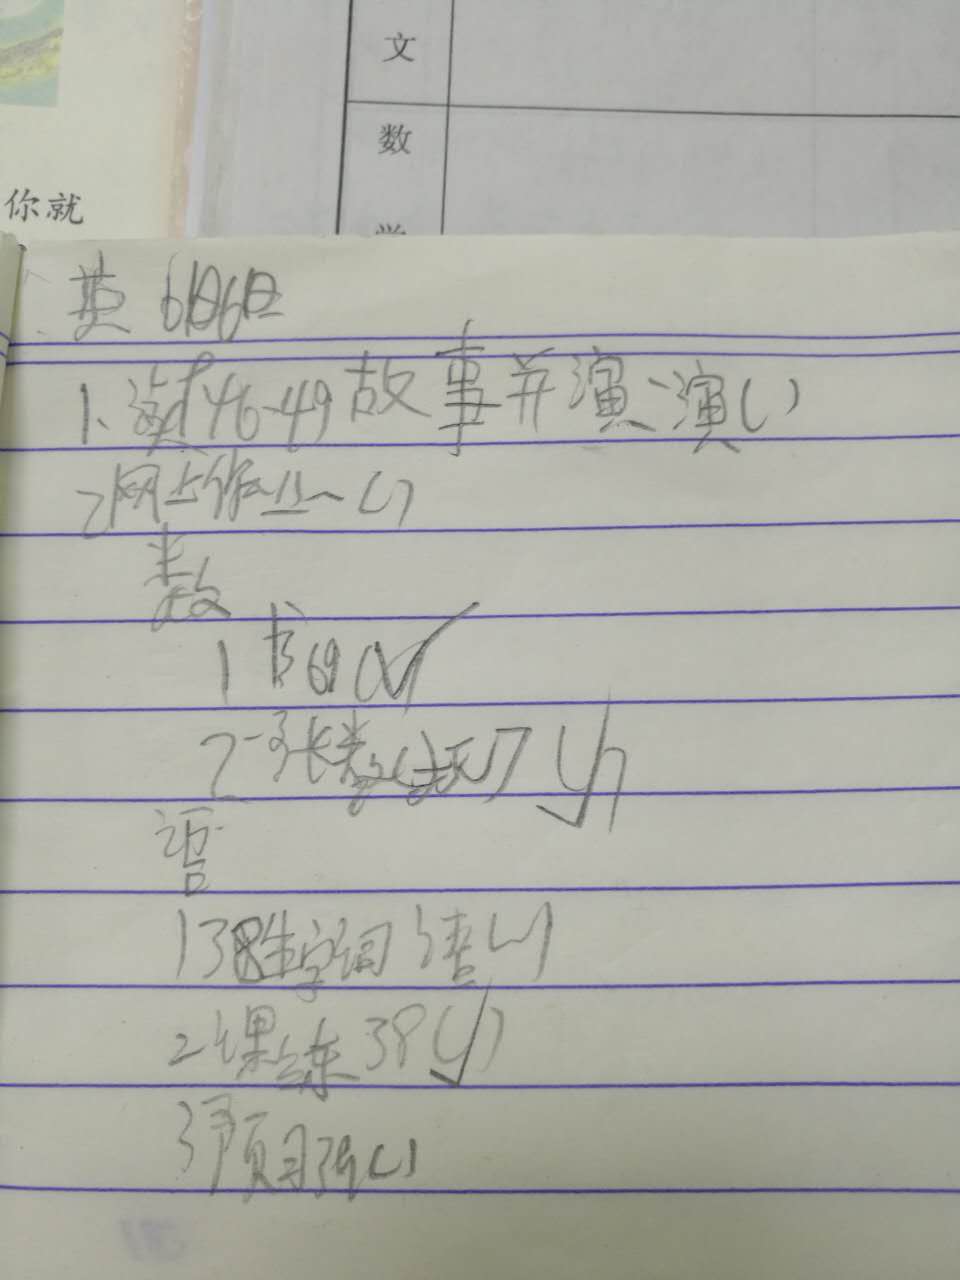 文
数
学
你就
英 6月6日
1、读P46-49故事并演一演( )
2网上作业一( )
数
1 书69(√)
2一张数( )(√)
语
1 38生字词 读( )
2课练38(√)
3预习39( )